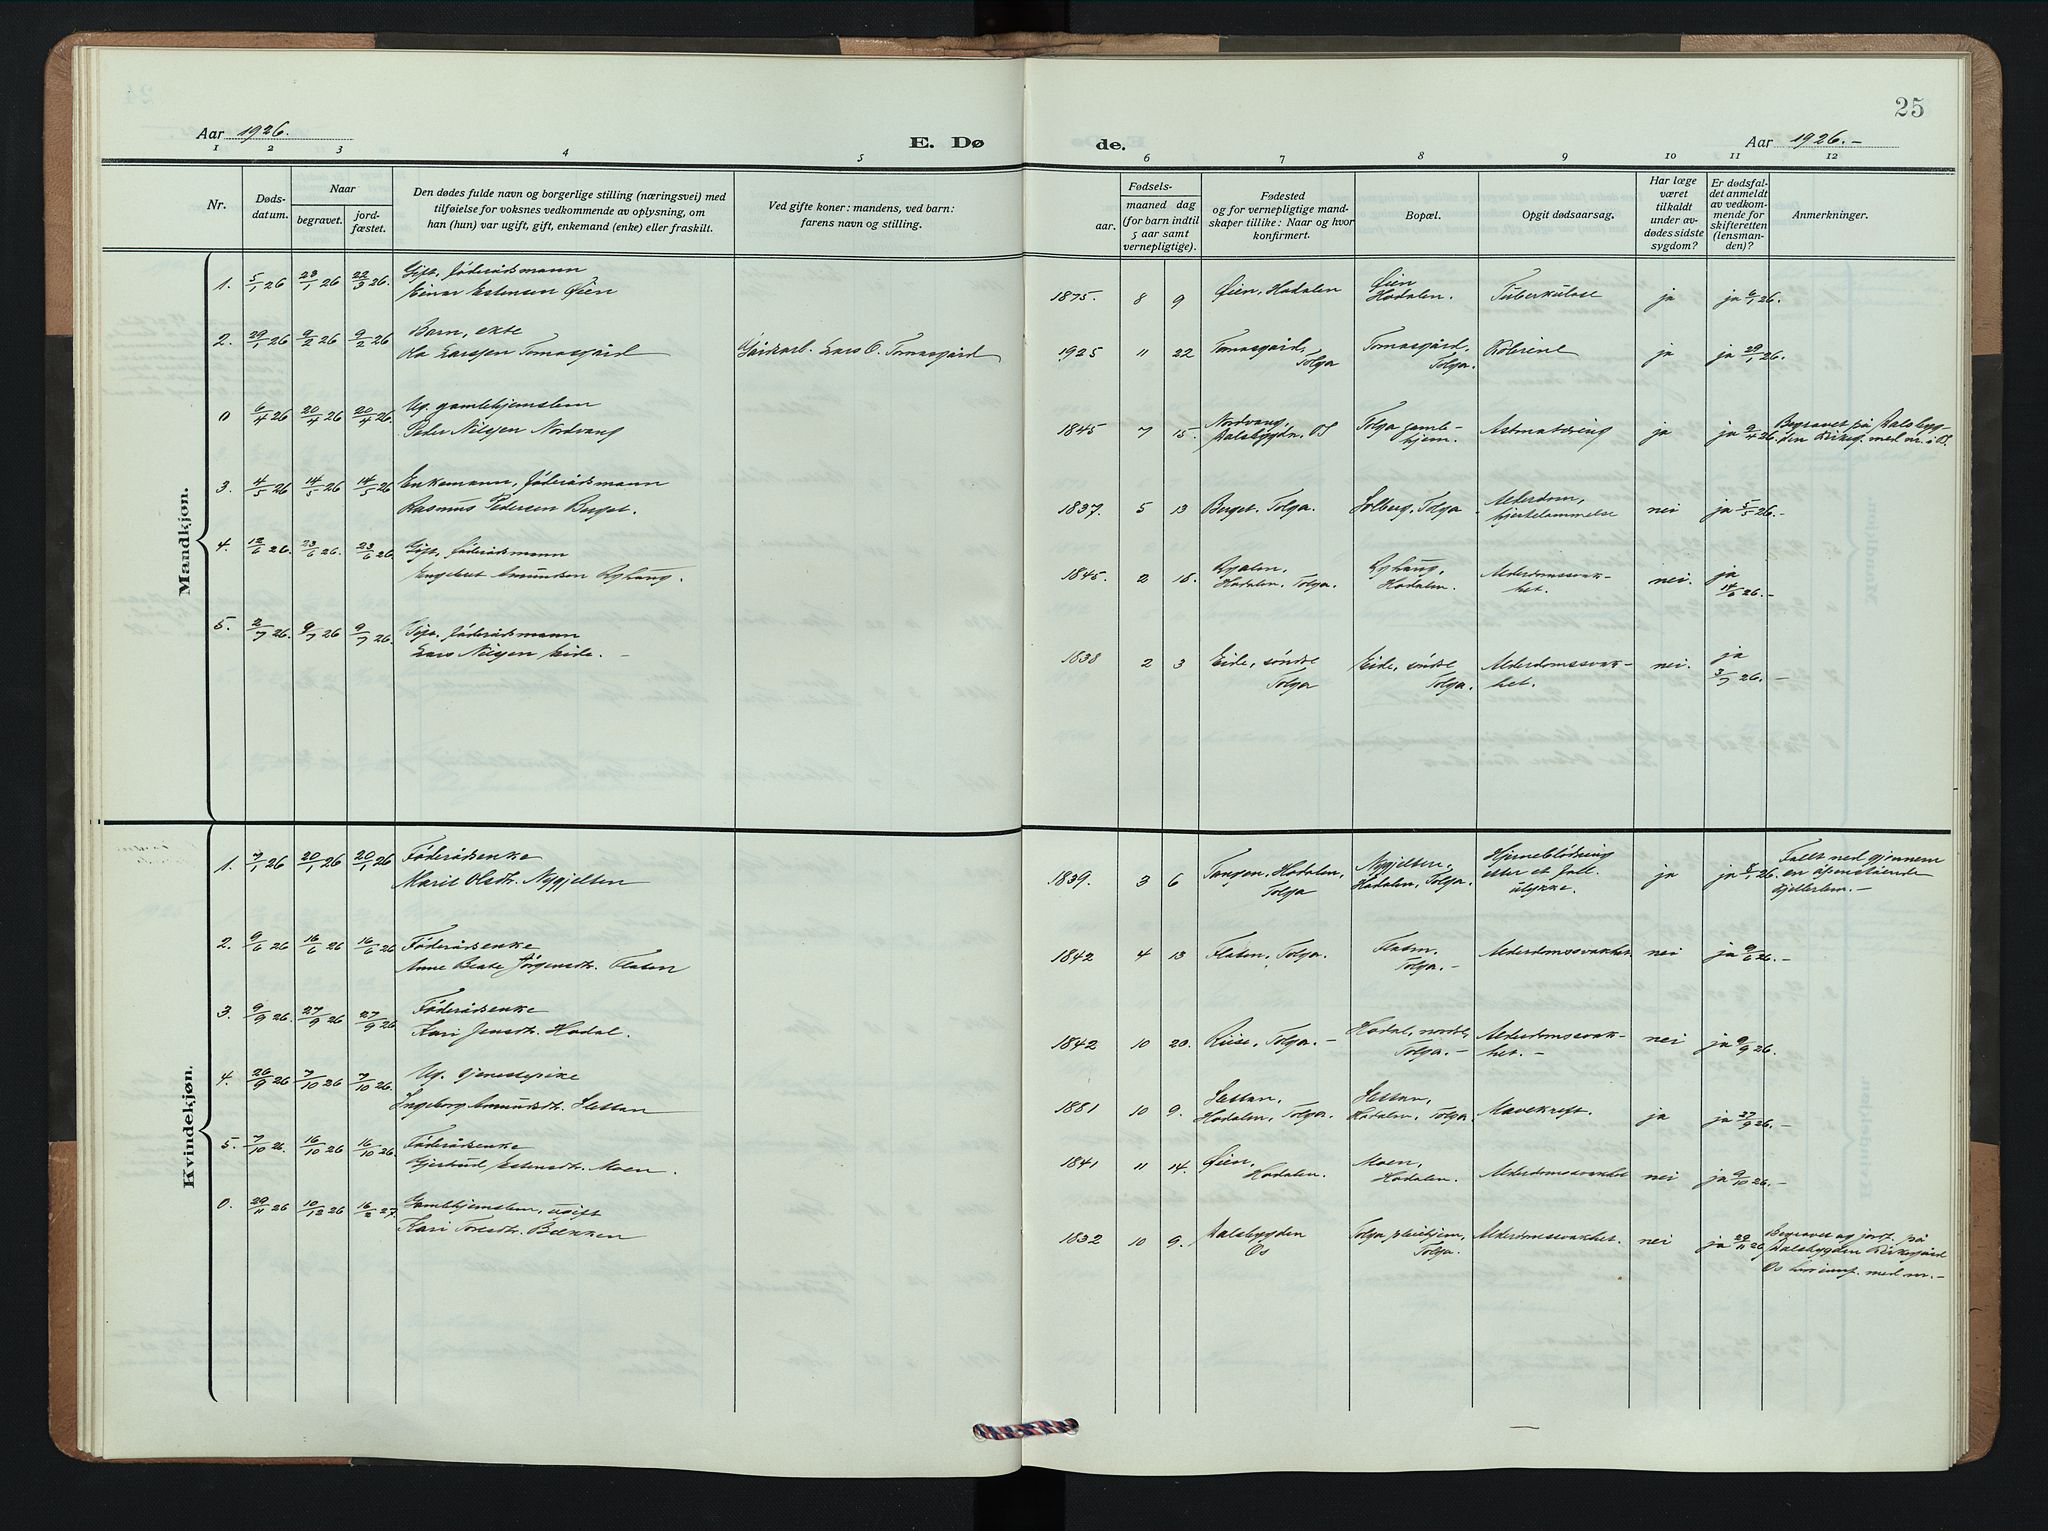 25
Aar 1926. E. Dø de. Aar 1926.-
1 2 3 4 5 6 7 8 9 10 11 12
Nr.
Døds-
datum.
Naar
begravet.
jord-
fæstet.
Den dødes fulde navn og borgerlige stilling (næringsvei) med
tilføielse for voksnes vedkommende av oplysning, om
han (hun) var ugift, gift, enkemand (enke) eller fraskilt.
Ved gifte koner: mandens, ved barn:
farens navn og stilling.
Fødsels-
aar.
maaned dag
(for barn indtil
5 aar samt
vernepligtige).
Fødested
og for vernepligtige mand-
skaper tillike: Naar og hvor
konfirmert.
Bopæl.
Opgit dødsaarsag.
Har læge
været
tilkaldt
under av-
dødes sidste
sygdom?
Er dødsfal-
det anmeldt
av vedkom-
mende for
skifteretten
(lensman-
den)?
Anmerkninger.
Mandkjøn.
1. 5/1 26 23/1 26 22/3 26. Gift, føderådsmann
Einar Estensen Øien
1875. 8 9 Øien, Hodalen
Øien
Hodalen.
Tuberkulose
ja
ja 6/1 26.
2. 29/1 26 9/2 26 9/2 26 Barn, ekte
Ola Larssen Tomasgård
Gårdarb. Lars O. Tomasgård
1925 11 22 Tomasgård,
Tolga
Tomasgård,
Tolga.
ja
ja 29/1 26.
0 6/4 26 20/4 26 20/4 26. Ug. gamlehjemslem
Peder Nilssen Nordvang
1845 7 15. Nordvang,
Dalsbygdn, Os
Tolga gamle-
hjem.
ja
ja 9/4 26.
Begravet på Dalsbyg-
den Kirkeg. med nr. i Os.
3. 4/5 26 14/5 26 14/5 26 Enkemann, føderådsmann
Rasmus Pedersen Berget.
1837. 5 13 Berget. Tolga.
Solberg, Tolga
Alderdom,
hjertelammelse
nei
ja 5/5 26.-
4. 12/6 26. 23/6 26. 23/6 26 Gift, føderådsmann
Engebret Amundsen Ryhaug.
1845. 2 18.
Hodalen, Tolga.
Ryhaug,
Hodalen.
Alderdomssvak-
het.
nei.
ja
14/6 26.-
5. 2/7 26. 9/7 26 9/7 26. Gift, føderådsmann
Lars Nilssen Eide. -
1838 2 3 Eide, søndre
Tolga
Eide, søndre
Tolga.
Alderdomssvak-
het.
nei.
ja
3/7 26. -
Kvindekjøn.
1. 7/1 26 20/1 26 20/1 26 Føderådsenke
Marit Olsdtr. Nygjelten
1839. 3 6 Tangen, Hodalen,
Tolga
Nygjelten,
Hodalen, Tolga.
Hjerneblødning
efter et fall.
ulykke.
ja
ja 8/1 26.
Falt ned gjennem
en åpenstående
kjellerlem. -
2. 9/6 26 16/6 26 16/6 26 Føderådsenke
Anne Beate Jørgensdtr. Flaten
1842 4 13 Flaten, Tolga.
Flaten,
Tolga. -
Alderdomssvakhet.
nei
ja 9/6 26. -
3. 9/9 26. 27/9 26 27/9 26. Føderådsenke
Kari Jensdtr. Hodal.
1842 10 20. Riise, Tolga. -
Hodal, nordre,
Tolga. -
Alderdomssvak-
het. -
nei
ja 9/9 26.
4. 26/9 26 7/10 26 7/10 26. Ug. tjenestepike
Ingeborg Amundsdtr. Slettan
1881 10 9. Slettan,
Hodalen, Tolga.
Slettan,
Hodalen, Tolga
Mavekreft.
ja
ja 27/9 26. -
5. 7/10 26. 16/10 26 16/10 26. Føderådsenke
Gjertrud Estensdtr. Moen.
1841 11 14. Øien,
Hodalen.
Moen,
Hodalen.
Alderdomssvakhet
nei
ja 9/10 26. -
0. 29/11 26 10/12 26 16/2 27. Gamlehjemslem, ugift
Kari Toresdtr. Bækken
1832 10 9. Dalsbygden
Os
Tolga pleiehjem,
Tolga.
Alderdomssvakhet.
nei
ja 29/11 26
Begravet og jordf. på
Dalsbygden Kirkegård
Os med nr. -